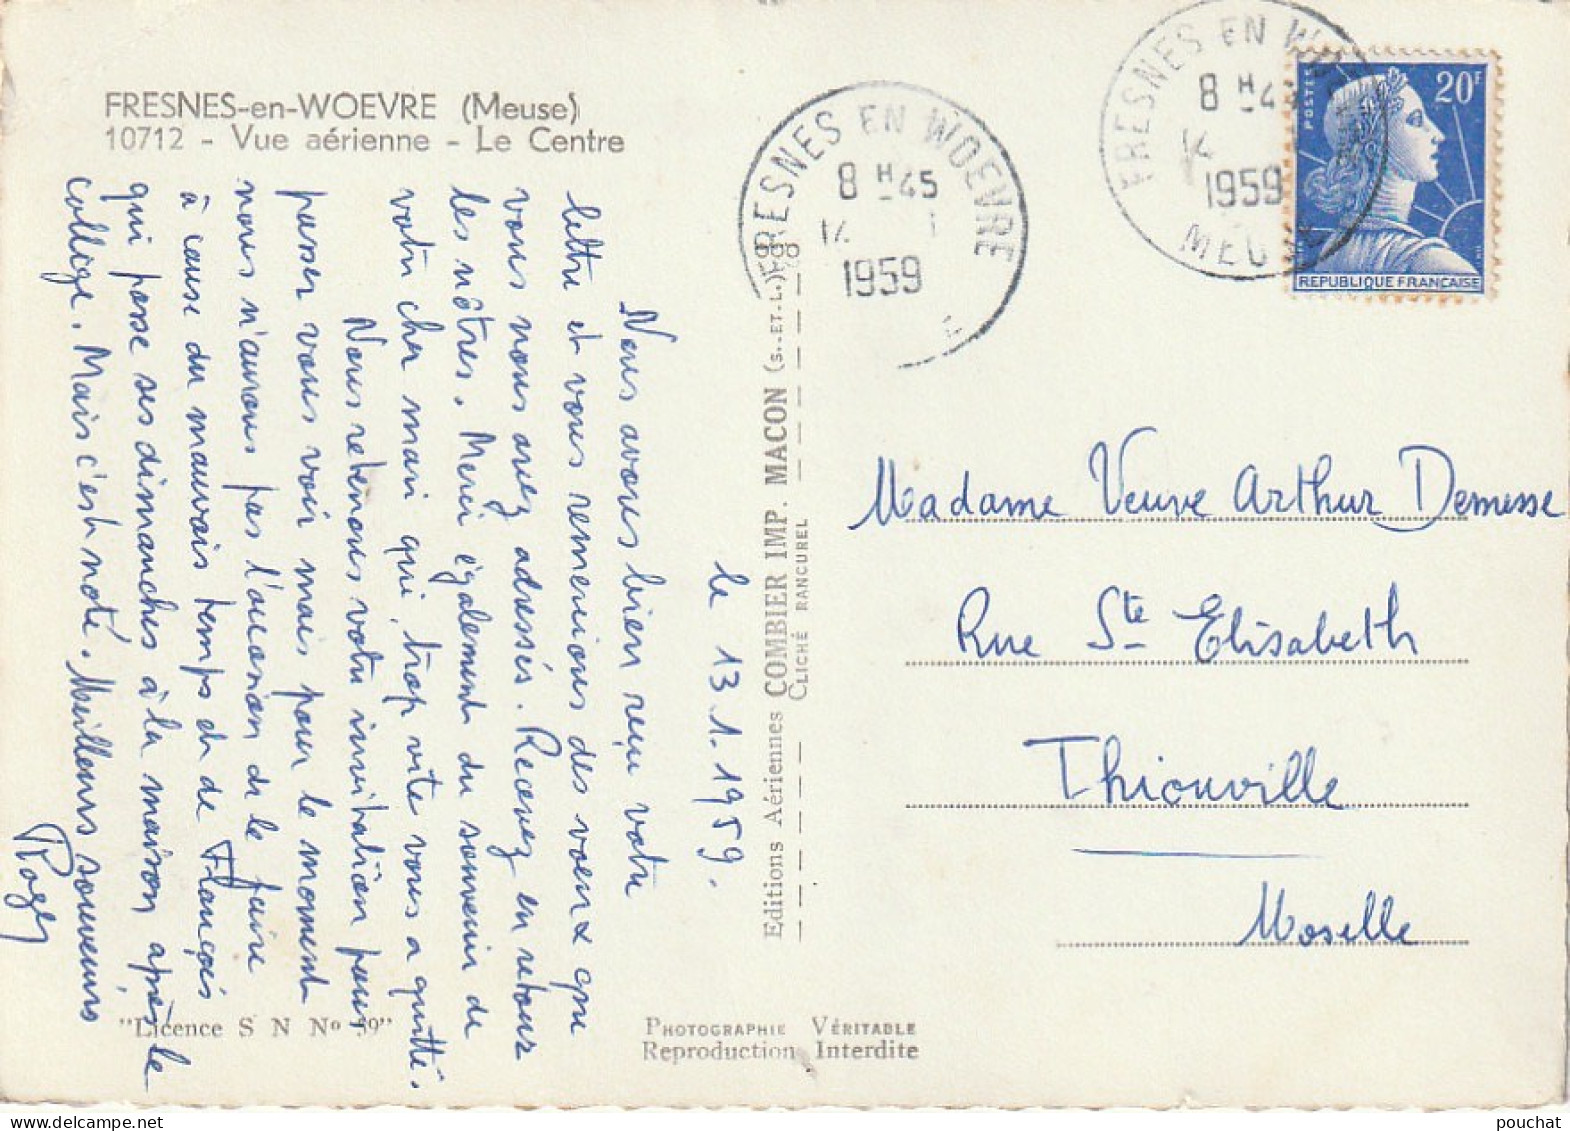 FRESNES-en-WOEVRE (Meuse)
10712 - Vue aérienne - Le Centre
le 13.1.1959.
Nous avons bien reçu votre
lettre et vous remercions des voeux que
vous nous avez adressés. Recevez en retour
les nôtres. Merci également du souvenir de
votre cher mari qui, trop vite vous a quitté.
Nous retenons votre invitation pour
passer vous voir mais pour le moment
nous n'avons pas l'occasion de le faire
à cause du mauvais temps et de François
qui passe ses dimanches à la maison après le
collège. Mais c'est noté. Meilleurs souvenirs
Roger
"Licence S N No 59"
Editions Aériennes COMBIER IMP. MACON (S.-ET-L.)
CLICHÉ RANCUREL
PHOTOGRAPHIE VÉRITABLE
Reproduction Interdite
FRESNES EN WOEVRE
8 H 45
14 1
1959
FRESNES EN WOE
8 H 4
14
1959
MEUSE
POSTES
20F
REPUBLIQUE FRANÇAISE
Madame Veuve Arthur Demesse
Rue Ste Elisabeth
Thionville
Moselle
pouchat